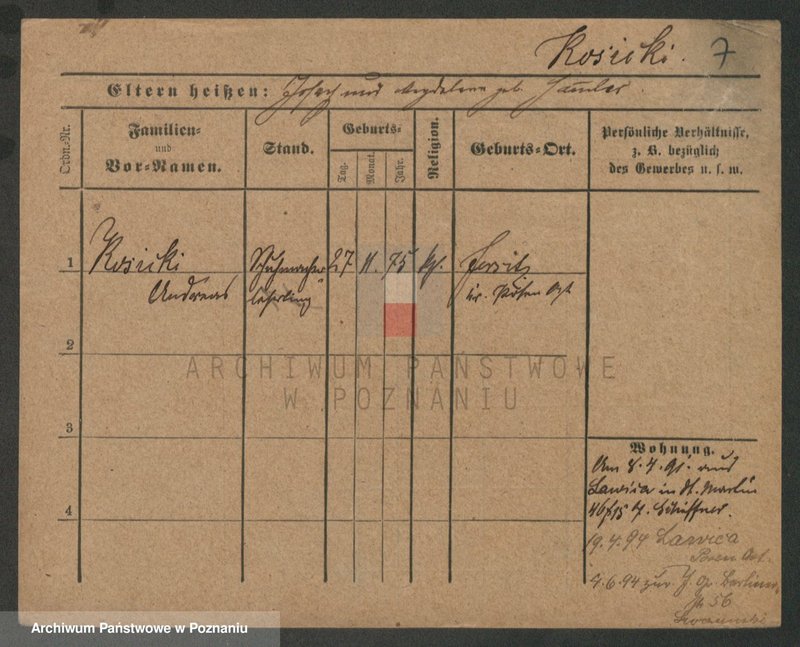 Rosicki. 7
Eltern heißen: Joseph und Magdalena geb.
Ordn.-Nr.
Familien-
und
Vor-Namen.
Stand.
Geburts-
Tag.
Monat.
Jahr.
Religion.
Geburts-Ort.
Persönliche Verhältnisse,
z. B. bezüglich
des Gewerbes u. s. w.
1
Rosicki
Andreas
Schuhmacher
lehrling
27
11.
75
kt.
Kr. Posen Ost
2
3
4
ARCHIWUM PAŃSTWOWE
W POZNANIU
Wohnung.
Am 8. 4. 91. aus
Lawica in St. Martin
46/
19.4.94 Lawica
Posen Ost.
4.6.94 zur. J. Gr. Berliner
56
Archiwum Państwowe w Poznaniu